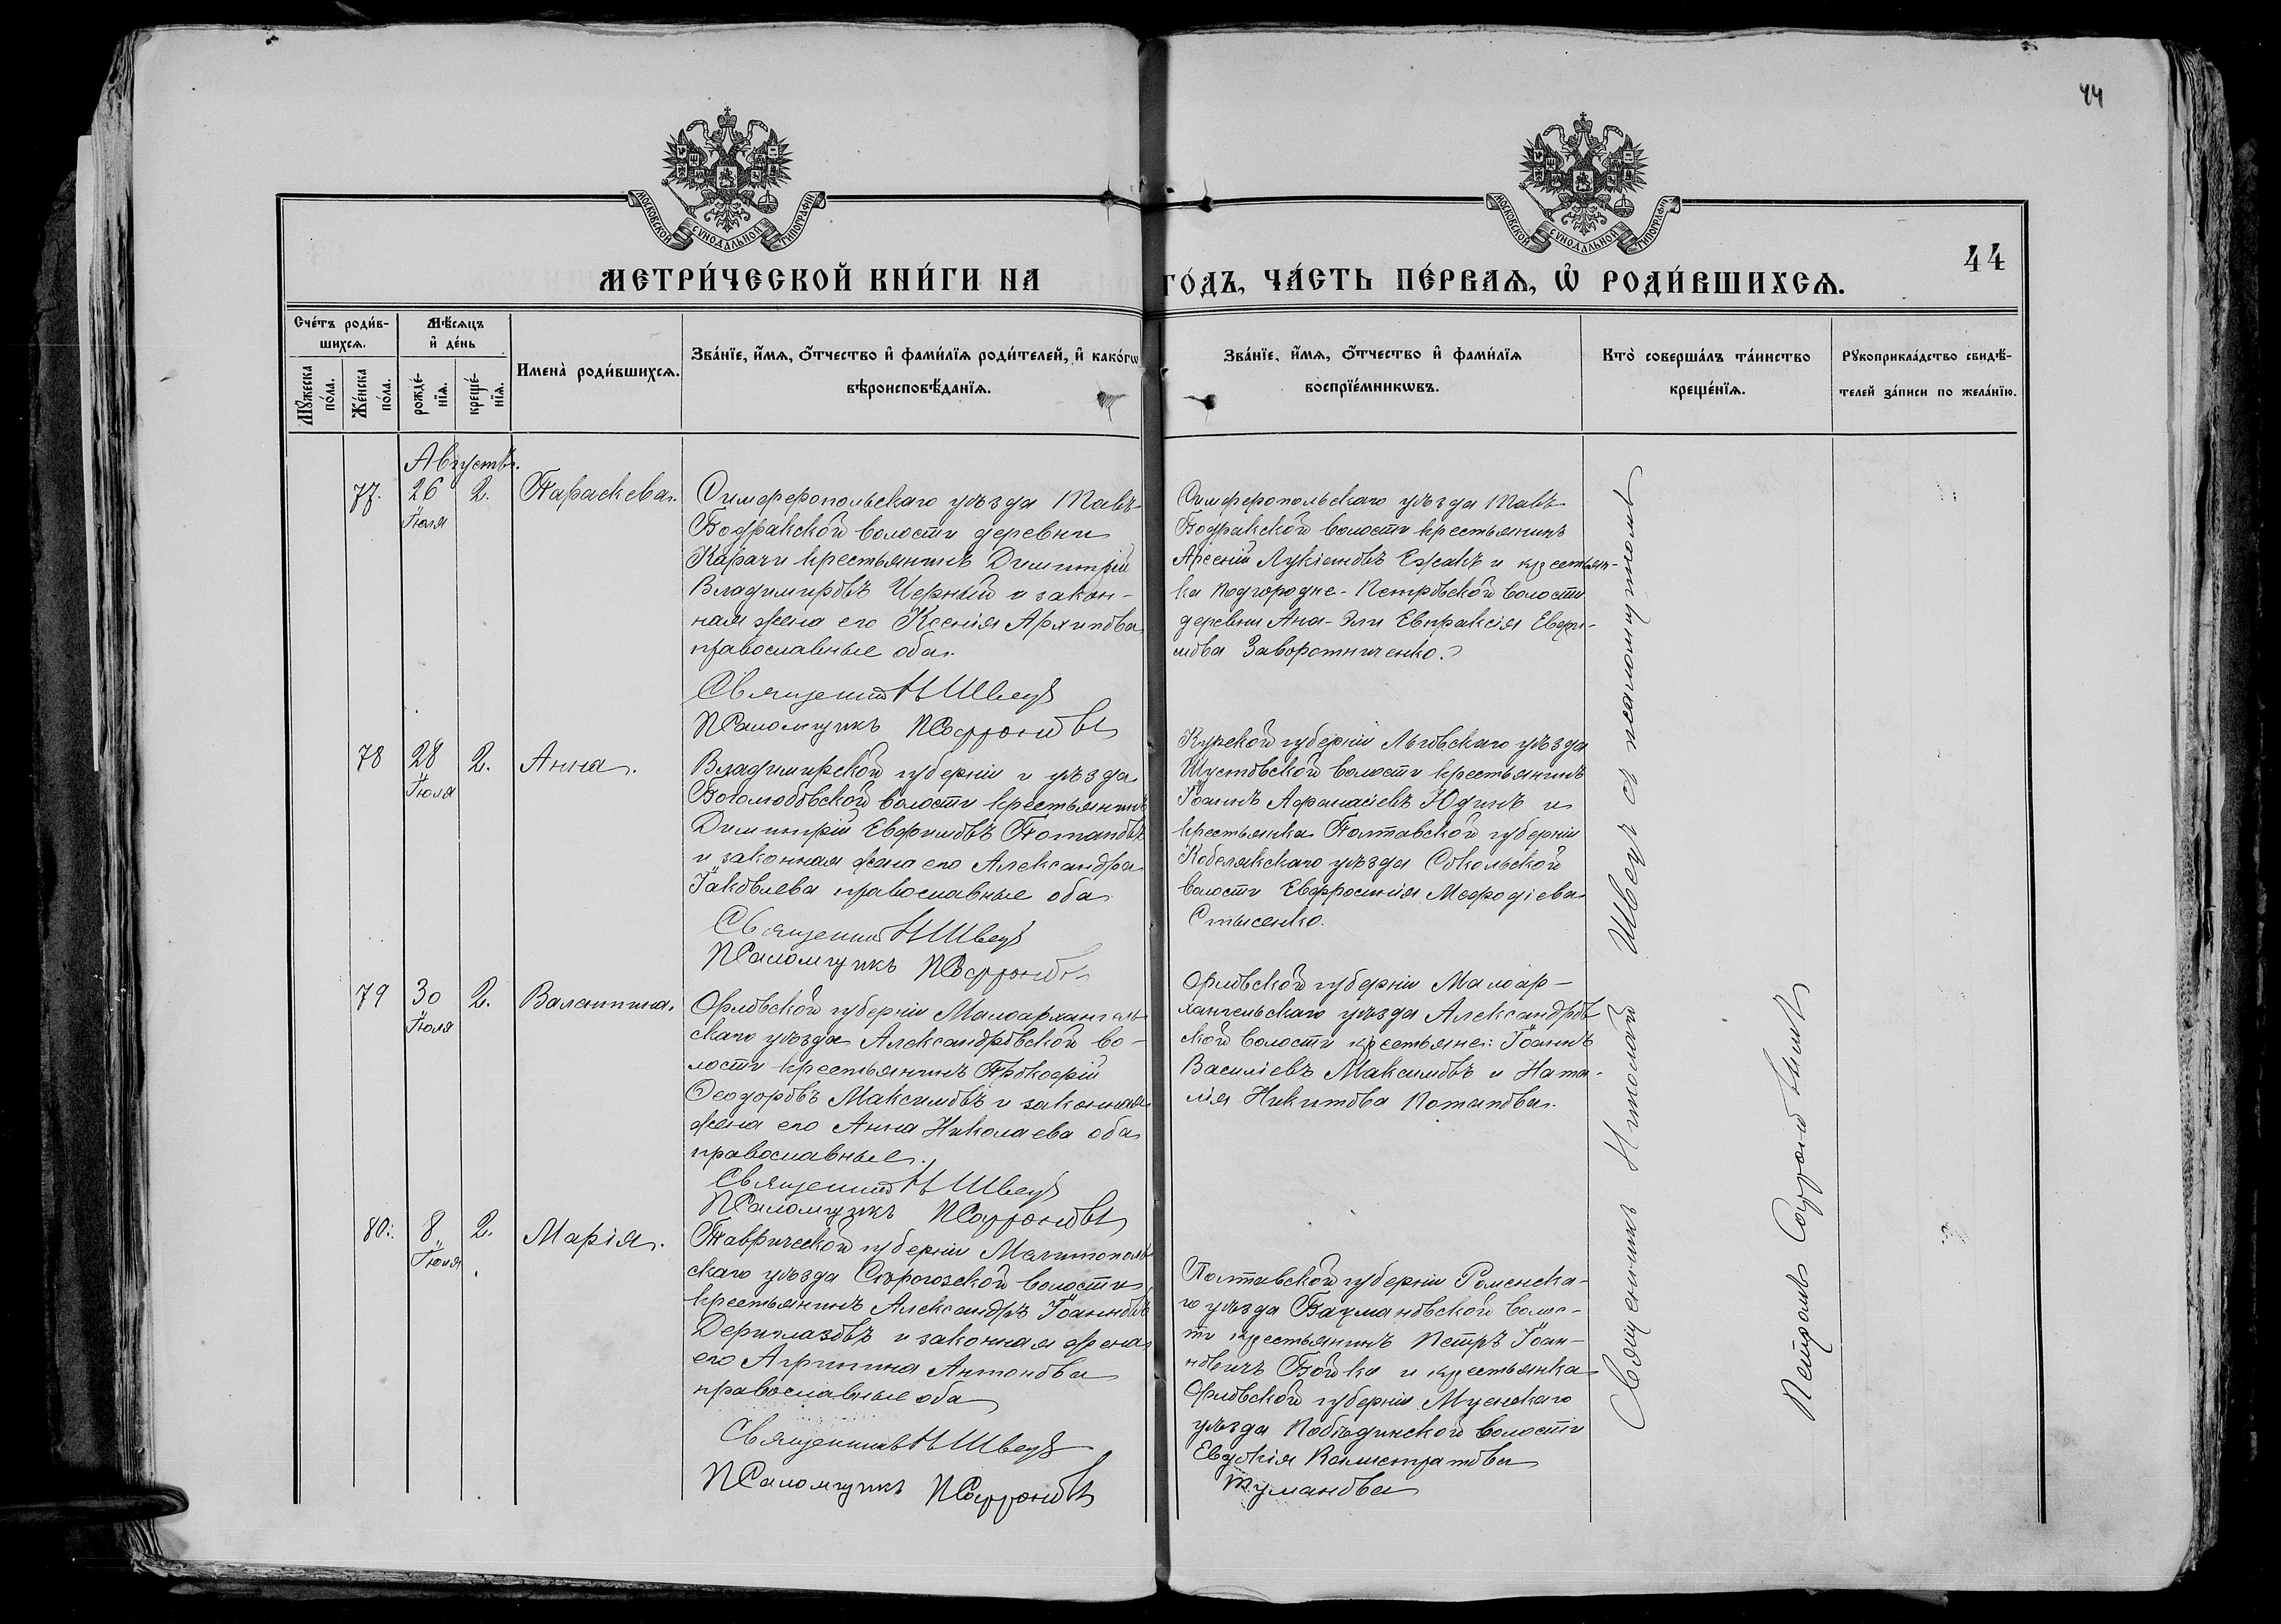 44
МОСКОВСКОЙ СУНОДАЛЬНОЙ ТИПОГРАФІИ
МОСКОВСКОЙ СУНОДАЛЬНОЙ ТИПОГРАФІИ
44
МЕТРИ́ЧЕСКОЙ КНИ́ГИ НА
ГО́ДЪ, ЧА́СТЬ ПЕ́РВАѦ, Ѡ҆ РОДИ́ВШИХСѦ.
Сче́тъ роди́в-
шихсѧ.
Мѣ́сѧцъ
и҆ де́нь
Мꙋ́жеска по́ла.
Же́нска по́ла.
рожде́-нїѧ.
креще́-нїѧ.
Имена̀ роди́вшихсѧ.
Зва́нїе, и҆́мѧ, ѻ҆́тчество и҆ фами́лїѧ роди́телей, и҆ како́гѡ
вѣроисповѣ́данїѧ.
Зва́нїе, и҆́мѧ, ѻ҆́тчество и҆ фами́лїѧ
воспрїе́мникѡвъ.
Кто̀ соверша́лъ та́инство
креще́нїѧ.
Рꙋкоприкла́дство свидѣ́-
телей за́писи по жела́нїю.
Августъ.
77. 26 2. Параскева.
Іюля
Симферопольскаго уѣзда Тавъ-
Бодракской волости деревни
Карачи крестьянинъ Димитрій
Владиміровъ Черный и закон-
ная жена его Ксенія Архипова
православные оба.
Священникъ Н Швецъ
Псаломщикъ П Сафоновъ
Симферопольскаго уѣзда Тавъ-
Бодракской волости крестьянинъ
Арсеній Лукіановъ Ежакъ и крестьян-
ка Подгородне-Петровской волости
деревни Ана-Эли Евпраксія Евфи-
мова Заворотниченко.
78 28 2. Анна.
Іюля
Владимирской губерніи и уѣзда
Боголюбовской волости крестьянинъ
Димитрій Евфимовъ Потаповъ
и законная жена его Александра
Іаковлева православные оба
Священникъ Н Швецъ
Псаломщикъ П Сафоновъ
Курской губерніи Льговскаго уѣзда
Шустовской волости крестьянинъ
Іоаннъ Афанасіевъ Юдинъ и
крестьянка Полтавской губерніи
Кобелякскаго уѣзда Сокольской
волости Евфросинія Мефодіева
Стысенко.
79 30 2. Валентина.
Іюля
Орловской губерніи Малоархангель-
скаго уѣзда Александровской во-
лости крестьянинъ Прокофій
Ѳеодоровъ Максимовъ и законная
жена его Анна Николаева оба
православные.
Священникъ Н Швецъ
Псаломщикъ П Сафоновъ
Орловской губерніи Малоар-
хангельскаго уѣзда Александров-
ской волости крестьяне: Іоаннъ
Василіевъ Максимовъ и Ната-
лія Никитова Потапова.
80. 8 2. Марія.
Іюля
Таврической губерніи Мелитополь-
скаго уѣзда Сѣрогозской волости
крестьянинъ Александръ Іоанновъ
Дериглазовъ и законная жена
его Агрипина Антонова
православные оба
Священникъ Н Швецъ
Псаломщикъ П Сафоновъ
Полтавской губерніи Роменска-
го уѣзда Бацмановской волос-
ти крестьянинъ Петръ Іоан-
новичъ Бойко и крестьянка
Орловской губерніи Мценскаго
уѣзда Побѣдинской волости
Евдокія Калистратова
Туманова
Священникъ Николай Швецъ съ псаломщикомъ
Петромъ Сафоновымъ